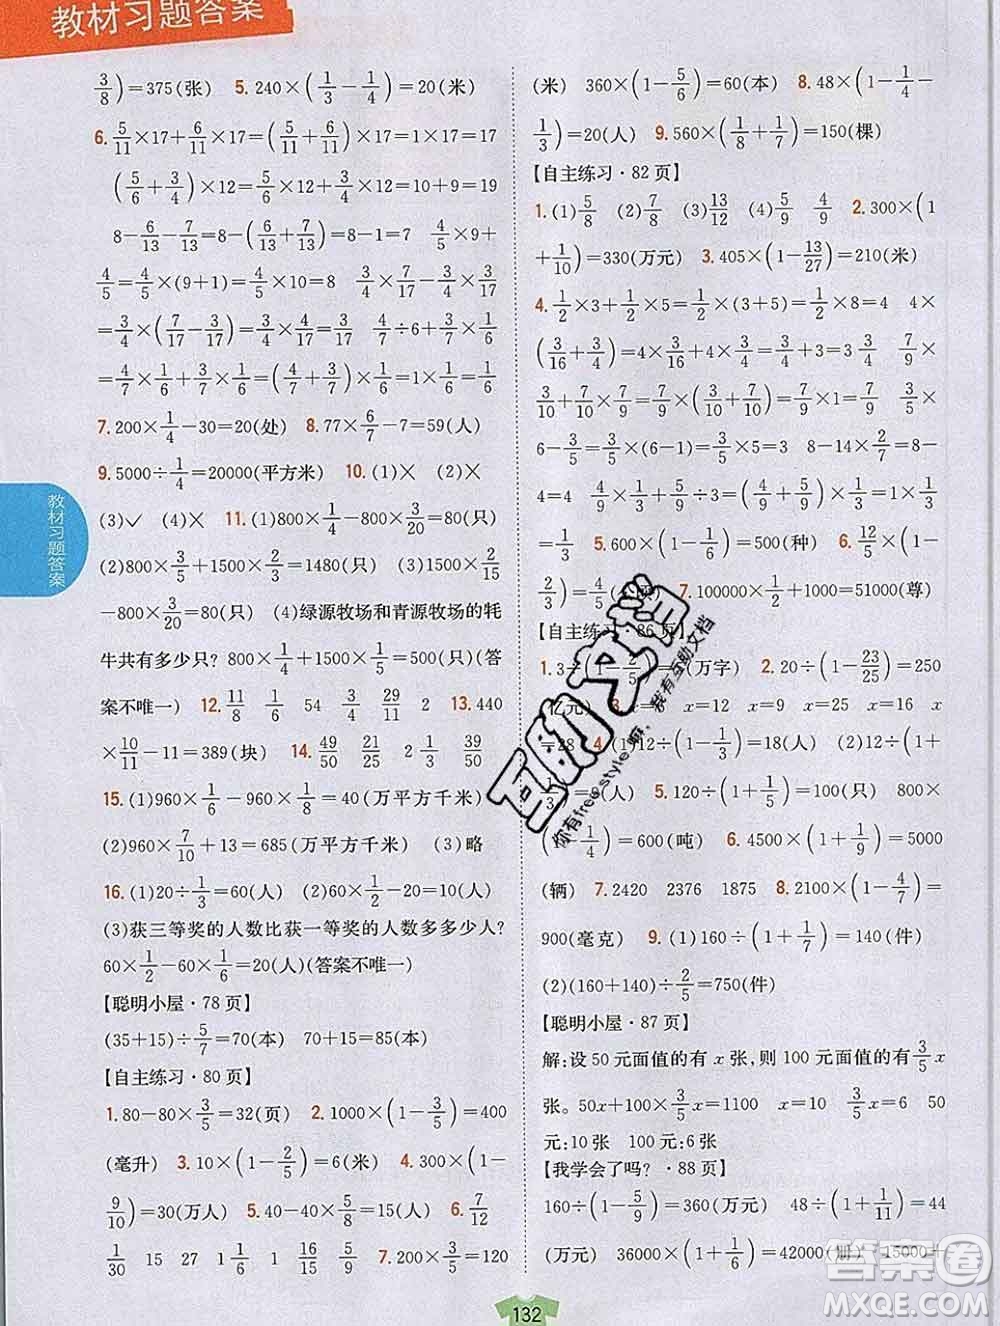 教材习题答案
3/8)=375(张) 5. 240×(1/3-1/4)=20(米)
6. 5/11×17+6/11×17=(5/11+6/11)×17=1×17=17
(5/6+3/4)×12=5/6×12+3/4×12=10+9=19
8-6/13-7/13=8-(6/13+7/13)=8-1=7 4/5×9+
4/5=4/5×(9+1)=4/5×10=8 3/4×7/17-3/4×3/17
=3/4×(7/17-3/17)=3/17 4/7÷6+3/7×1/6
=4/7×1/6+3/7×1/6=(4/7+3/7)×1/6=1×1/6=1/6
7. 200×1/4-30=20(处) 8. 77×6/7-7=59(人)
9. 5000÷1/4=20000(平方米) 10. (1)× (2)×
(3)✓ (4)× 11. (1)800×1/4-800×3/20=80(只)
(2)800×3/5+1500×2/3=1480(只) (3)1500×2/15
-800×3/20=80(只) (4)绿源牧场和青源牧场的牦
牛共有多少只? 800×1/4+1500×1/5=500(只)(答
案不唯一) 12. 11/8 1/6 54 4/3 29/11 2 13. 440
×10/11-11=389(块) 14. 49/50 21/25 2 1/3 39/50
15. (1)960×1/6-960×1/8=40(万平方千米)
(2)960×7/10+13=685(万平方千米) (3)略
16. (1)20÷1/3=60(人) (2)60×1/2=30(人)
(3)获三等奖的人数比获一等奖的人数多多少人?
60×1/2-60×1/6=20(人)(答案不唯一)
【聪明小屋·78页】
(35+15)÷5/7=70(本) 70+15=85(本)
【自主练习·80页】
1. 80-80×3/5=32(页) 2. 1000×(1-3/5)=400
(毫升) 3. 10×(1-2/5)=6(米) 4. 300×(1-
9/10)=30(万人) 5. 40-40×3/8=25(人) 6. 7/12
1/30 15 27 1 1/6 16/15 1/2 7. 200×3/5=120
(米) 360×(1-5/6)=60(本) 8. 48×(1-1/4-
1/3)=20(人) 9. 560×(1/8+1/7)=150(棵)
【自主练习·82页】
1. (1)5/8 (2)7/8 (3)13/12 (4)5/9 4/9 2. 300×(1
+1/10)=330(万元) 3. 405×(1-13/27)=210(米)
4. 1/2×3+1/2×5=1/2×(3+5)=1/2×8=4 4×
(3/16+3/4)=4×3/16+4×3/4=3/4+3=3 3/4 7/9×
3/10+7/10×7/9=(3/10+7/10)×7/9=7/9 3/5×
6-3/5=3/5×(6-1)=3/5×5=3 8-4/5×2/7÷2/35=8-
4=4 4/9×1/3+5/9÷3=(4/9+5/9)×1/3=1×1/3
=1/3 5. 600×(1-1/6)=500(种) 6. 12/5×(1-
2/3)=4/5(万) 7. 100000×1/2+1000=51000(尊)
【自主练习·86页】
1. 3÷(1-2/5)=5(万字) 2. 20÷(1-23/25)=250
(亿元) 3. x= x=12 x=25 x=16 x
=28 4. (1)12÷(1-1/3)=18(人) (2)12÷(1+
1/3)=9(人) 5. 120÷(1+1/5)=100(只) 800×
(1-1/4)=600(吨) 6. 4500×(1+1/9)=5000
(辆) 7. 2420 2376 1875 8. 2100×(1-4/7)=
900(毫克) 9. (1)160÷(1+1/7)=140(件)
(2)(160+140)÷2/5=750(件)
【聪明小屋·87页】
解:设50元面值的有x张,则100元面值的有3/5x
张。50x+100×3/5x=1100 x=10 3/5x=6 50
元:10张 100元:6张
【我学会了吗?·88页】
160÷(1-5/9)=360(万元) 48÷(1+1/11)=44
(万元) 36000×(1+1/6)=42000(册) 15000÷
教材习题答案
132
互助文档
你有free style嘛,我有互助文档
答案圈
MXQE.COM